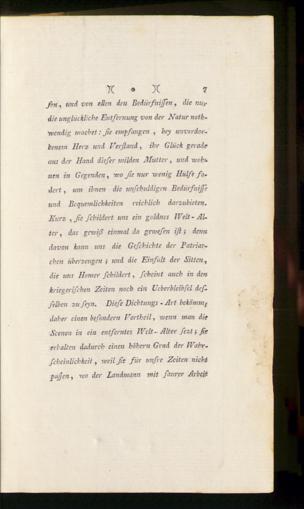 7
sen, und von allen den Bedürfnissen, die nur
die unglückliche Entfernung von der Natur noth-
wendig machet: sie empfangen, bey unverdor-
benem Herz und Verstand, ihr Glück gerade
aus der Hand dieser milden Mutter, und woh-
nen in Gegenden, wo sie nur wenig Hülfe fo-
dert, um ihnen die unschuldigen Bedürfnisse
und Bequemlichkeiten reichlich darzubieten.
Kurz, sie schildert uns ein goldnes Welt-Al-
ter, das gewiss einmal da gewesen ist; denn
davon kann uns die Geschichte der Patriar-
chen überzeugen; und die Einfalt der Sitten,
die uns Homer schildert, scheint auch in den
kriegerischen Zeiten noch ein Ueberbleibsel des-
selben zu seyn. Diese Dichtungs-Art bekömmt
daher einen besondern Vortheil, wenn man die
Scenen in ein entferntes Welt-Alter sezt; sie
erhalten dadurch einen höhern Grad der Wahr-
scheinlichkeit, weil sie für unsre Zeiten nicht
passen, wo der Landmann mit saurer Arbeit